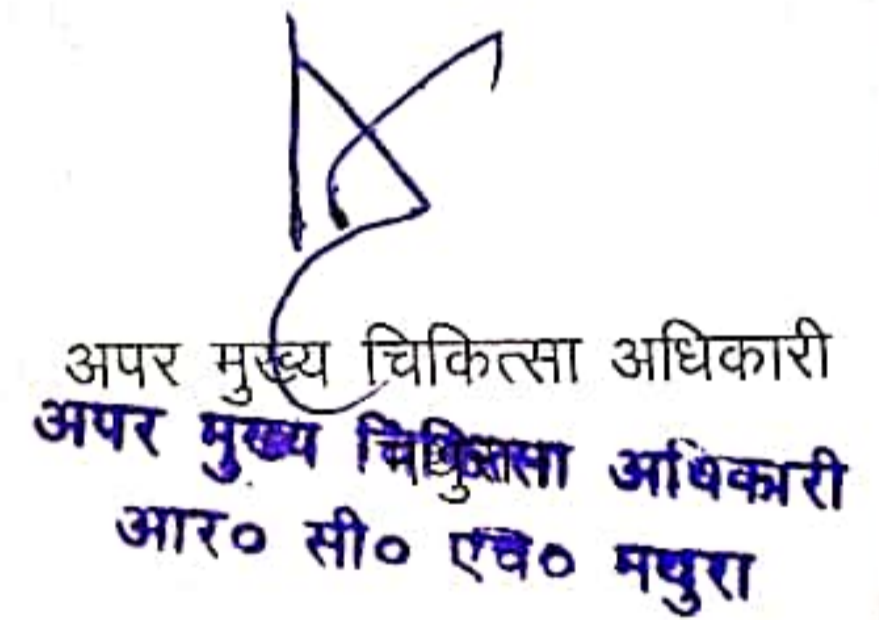 अपर मुख्य चिकित्सा अधिकारी
अपर मुख्य चिकित्सा अधिकारी
आर० सी० एच० मथुरा